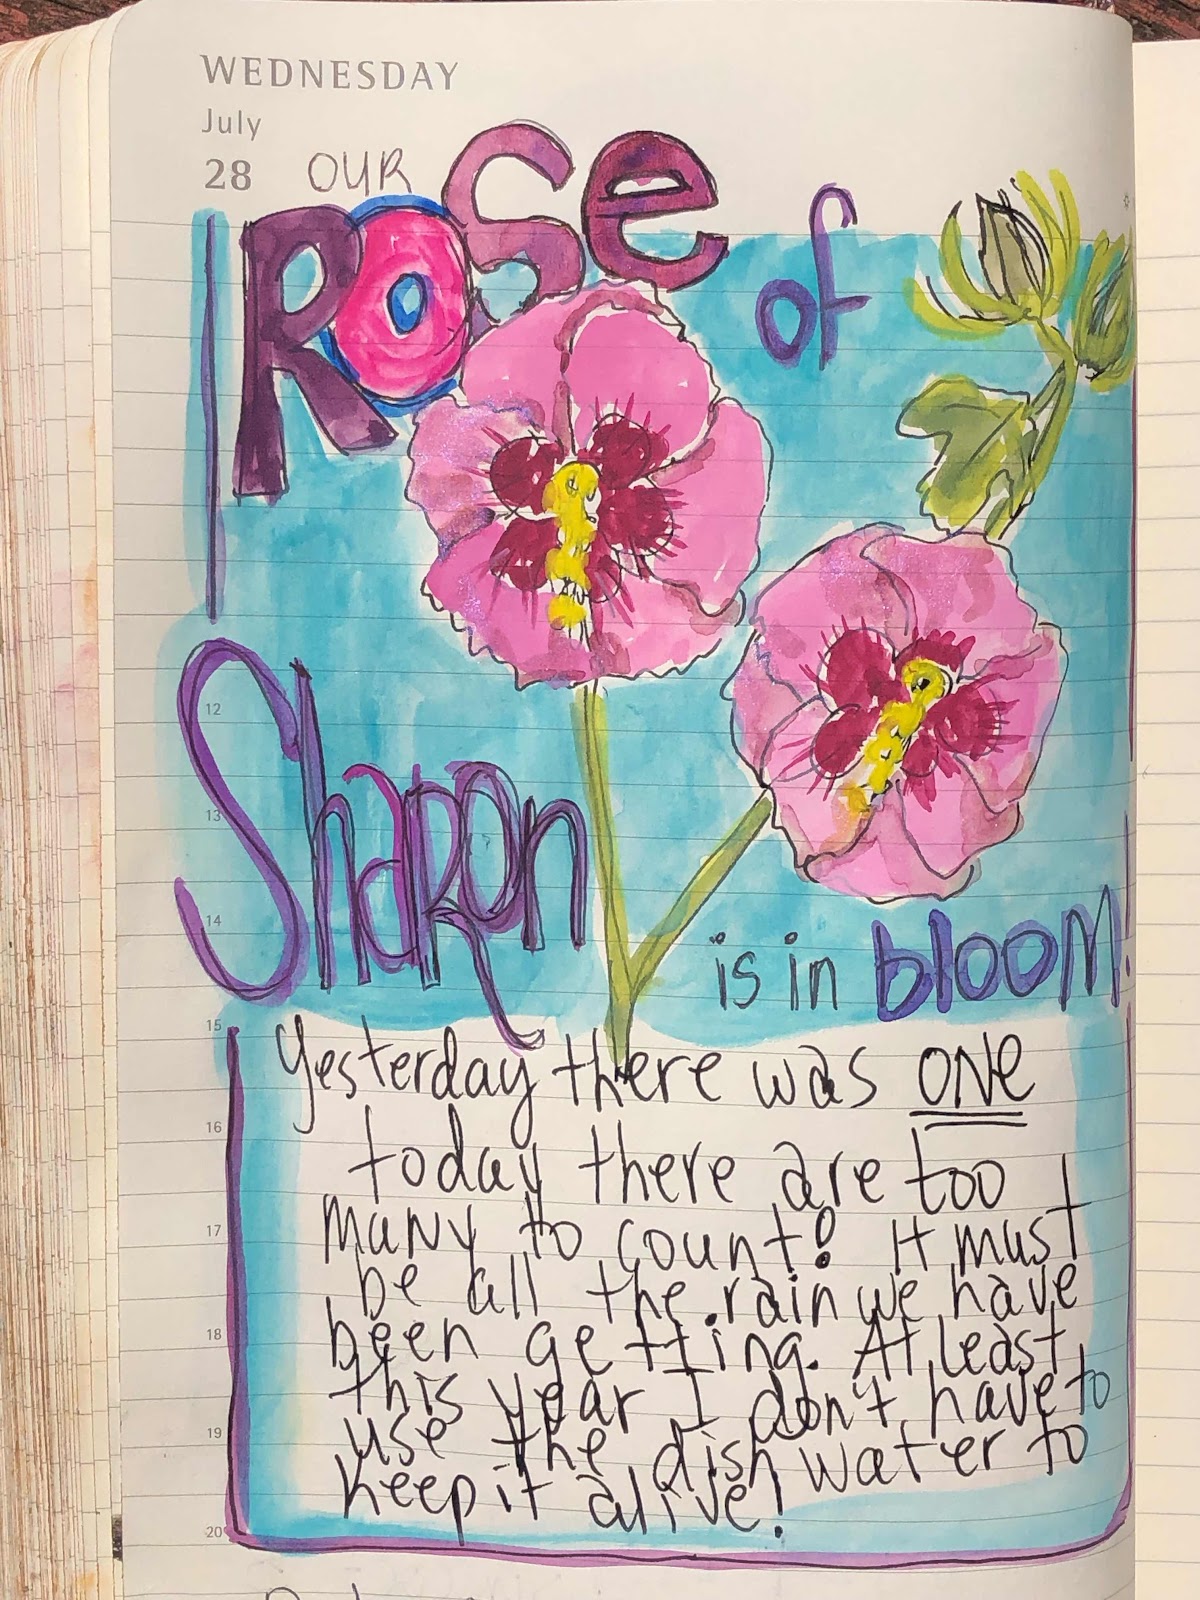 WEDNESDAY
July
28 OUR
ROSe
of
12
13
ShaRon
14
is in blooM!
15
Yesterday there was ONE
16
today there are too
17
many to count! It must
be all the rain we have
18
been getting. At least
this year I don't have to
19
use the dish water to
keep it alive!
20